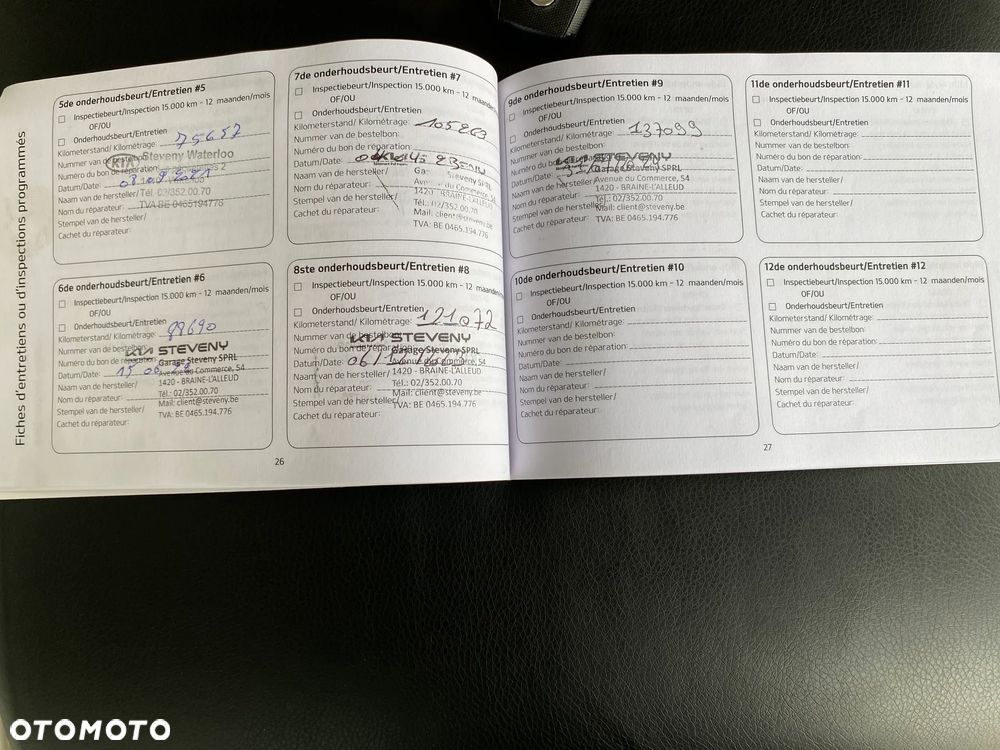 Fiches d'entretiens ou d'inspections programmés
5de onderhoudsbeurt/Entretien #5
Inspectiebeurt/Inspection 15.000 km - 12 maanden/mois
OF/OU
Onderhoudsbeurt/Entretien
Kilometerstand/ Kilométrage: 75657
Nummer van
KIA Steveny Waterloo
Numéro du bon de réparation:
Datum/Date:
Naam van de hersteller/ Tél. 02/352.00.70
Nom du réparateur: TVA BE 0465194776
Stempel van de hersteller/
Cachet du réparateur:
6de onderhoudsbeurt/Entretien #6
Inspectiebeurt/Inspection 15.000 km - 12 maanden/mois
OF/OU
Onderhoudsbeurt/Entretien
Kilometerstand/ Kilométrage:
Nummer van de
KIA STEVENY
Numéro du bon de réparation Garage Steveny SPRL
Datum/Date: Avenue du Commerce, 54
Naam van de hersteller/ 1420 - BRAINE-L'ALLEUD
Nom du réparateur: Tél.: 02/352.00.70
Stempel van de hersteller/ Mail: client@steveny.be
Cachet du réparateur: TVA: BE 0465.194.776
7de onderhoudsbeurt/Entretien #7
Inspectiebeurt/Inspection 15.000 km - 12 maanden
OF/OU
Onderhoudsbeurt/Entretien
Kilometerstand/ Kilométrage:
Nummer van de bestelbon:
Numéro du bon de réparation:
Datum/Date:
Naam van de hersteller/ Steveny SPRL
Nom du réparateur: du Commerce, 54
Stempel van de hersteller/ 1420 - BRAINE-L'ALLEUD
Tél.: 02/352.00.70
Cachet du réparateur: Mail: client@steveny.be
TVA: BE 0465.194.776
8ste onderhoudsbeurt/Entretien #8
Inspectiebeurt/Inspection 15.000 km - 12 maanden
OF/OU
Onderhoudsbeurt/Entretien
Kilometerstand/ Kilométrage: 121072
Nummer van de bestelbon:
KIA STEVENY
Numéro du bon de réparation: Garage Steveny SPRL
Datum/Date: Avenue du Commerce, 54
Naam van de hersteller/ 1420 - BRAINE-L'ALLEUD
Nom du réparateur: Tél.: 02/352.00.70
Stempel van de hersteller/ Mail: client@steveny.be
Cachet du réparateur: TVA: BE 0465.194.776
26
9de onderhoudsbeurt/Entretien #9
Inspectiebeurt/Inspection 15.000 km - 12 maanden/mois
OF/OU
Onderhoudsbeurt/Entretien
Kilometerstand/ Kilométrage: 137099
Nummer van de bestelbon:
KIA STEVENY
Numéro du bon de Garage Steveny SPRL
Datum/Date:
Naam van de hersteller/ Avenue du Commerce, 54
Nom du réparateur: 1420 - BRAINE-L'ALLEUD
Stempel van de hersteller/ Tél.: 02/352.00.70
Mail: client@steveny.be
Cachet du réparateur: TVA: BE 0465.194.776
10de onderhoudsbeurt/Entretien #10
Inspectiebeurt/Inspection 15.000 km - 12 maanden/mois
OF/OU
Onderhoudsbeurt/Entretien
Kilometerstand/ Kilométrage:
Nummer van de bestelbon:
Numéro du bon de réparation:
Datum/Date:
Naam van de hersteller/
Nom du réparateur:
Stempel van de hersteller/
Cachet du réparateur:
11de onderhoudsbeurt/Entretien #11
Inspectiebeurt/Inspection 15.000 km - 12 maanden/mois
OF/OU
Onderhoudsbeurt/Entretien
Kilometerstand/ Kilométrage:
Nummer van de bestelbon:
Numéro du bon de réparation:
Datum/Date:
Naam van de hersteller/
Nom du réparateur:
Stempel van de hersteller/
Cachet du réparateur:
12de onderhoudsbeurt/Entretien #12
Inspectiebeurt/Inspection 15.000 km - 12 maanden/mois
OF/OU
Onderhoudsbeurt/Entretien
Kilometerstand/ Kilométrage:
Nummer van de bestelbon:
Numéro du bon de réparation:
Datum/Date:
Naam van de hersteller/
Nom du réparateur:
Stempel van de hersteller/
Cachet du réparateur:
27
OTOMOTO